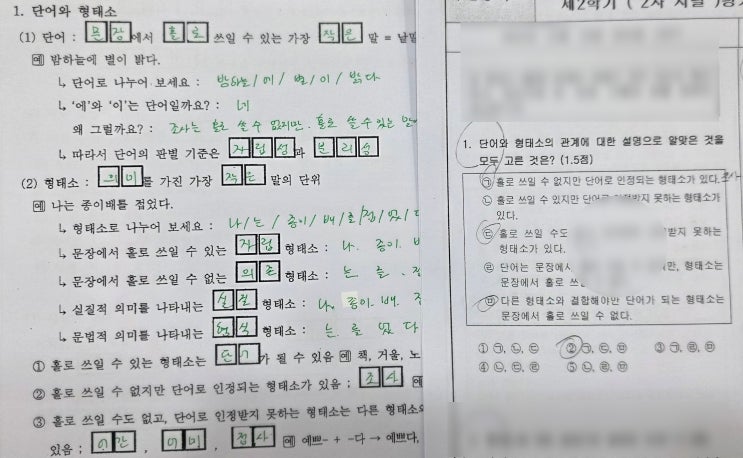 1. 단어와 형태소
(1) 단어 : 문장에서 홀로 쓰일 수 있는 가장 작은 말 = 낱말
예 밤하늘에 별이 밝다.
↳ 단어로 나누어 보세요 : 밤하늘 / 에 / 별 / 이 / 밝다
↳ '에'와 '이'는 단어일까요? : 네
왜 그럴까요? : 조사는 홀로 쓸 수 없지만. 홀로 쓸 수 있는 말
↳ 따라서 단어의 판별 기준은 자립성과 분리성
(2) 형태소 : 의미를 가진 가장 작은 말의 단위
예 나는 종이배를 접었다.
↳ 형태소로 나누어 보세요 : 나 / 는 / 종이 / 배 / 를 / 접 / 었 / 다
↳ 문장에서 홀로 쓰일 수 있는 자립 형태소 : 나. 종이. 배
↳ 문장에서 홀로 쓰일 수 없는 의존 형태소 : 는. 를. 접
↳ 실질적 의미를 나타내는 실질 형태소 : 나. 종이. 배. 접
↳ 문법적 의미를 나타내는 형식 형태소 : 는. 를. 었 다
① 홀로 쓰일 수 있는 형태소는 단어가 될 수 있음 예 책, 거울, 노
② 홀로 쓰일 수 없지만 단어로 인정되는 형태소가 있음 ; 조사 예
③ 홀로 쓰일 수도 없고, 단어로 인정받지 못하는 형태소는 다른 형태소와
있음 ; 어간, 어미, 접사 예 예쁘- + -다 → 예쁘다,
제2학기 ( 2차 지필 )평가
1. 단어와 형태소의 관계에 대한 설명으로 알맞은 것을
모두 고른 것은? (1.5점)
㉠ 홀로 쓰일 수 없지만 단어로 인정되는 형태소가 있다. 조사
㉡ 홀로 쓰일 수 있지만 단어로 인정받지 못하는 형태소가
있다.
㉢ 홀로 쓰일 수도 받지 못하는
형태소가 있다.
㉣ 단어는 문장에서 만, 형태소는
문장에서 홀로 쓰일 수
㉤ 다른 형태소와 결합해야만 단어가 되는 형태소는
문장에서 홀로 쓰일 수 없다.
① ㉠, ㉡, ㉢ ② ㉠, ㉢, ㉤ ③ ㉠, ㉣, ㉤
④ ㉡, ㉢, ㉣ ⑤ ㉡, ㉣, ㉤